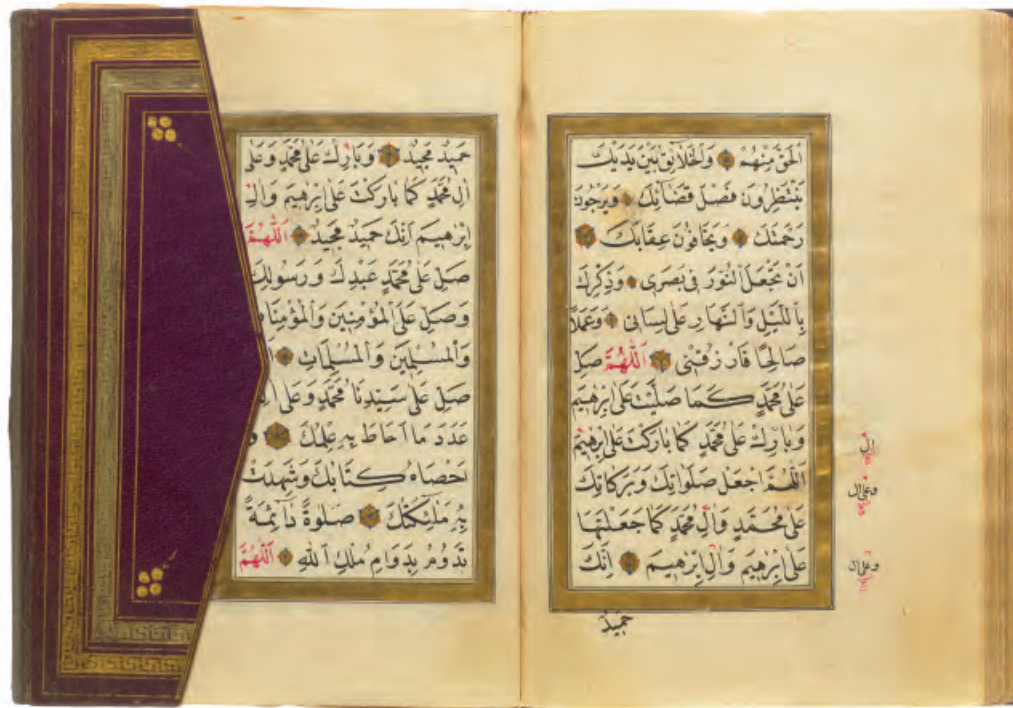 الحَقُّ مِنْهُمْ وَالْخَلَآئِقُ بَيْنَ يَدَيْكَ
يَنْتَظِرُونَ فَصْلَ قَضَآئِكَ وَيَرْجُونَ
رَحْمَتَكَ وَيَخَافُونَ عِقَابَكَ
اَنْ تَجْعَلَ النُّورَ فِى بَصَرِى وَذِكْرِكَ
بِاللَّيْلِ وَالنَّهَارِ عَلَى لِسَانِى وَعَمَلًا
صَالِحًا فَارْزُقْنِى اَللّٰهُمَّ صَلِّ
عَلٰى مُحَمَّدٍ كَمَا صَلَّيْتَ عَلٰى اِبْرٰهِيمَ
وَبَارِكْ عَلٰى مُحَمَّدٍ كَمَا بَارَكْتَ عَلٰى اِبْرٰهِيمَ
اَللّٰهُمَّ اجْعَلْ صَلَوَاتِكَ وَبَرَكَاتِكَ
عَلٰى مُحَمَّدٍ وَاٰلِ مُحَمَّدٍ كَمَا جَعَلْتَهَا
عَلٰى اِبْرٰهِيمَ وَاٰلِ اِبْرٰهِيمَ اِنَّكَ
حَمِيدٌ
اٰل
وعلى ال
حَمِيدٌ مَجِيدٌ وَبَارِكْ عَلٰى مُحَمَّدٍ وَعَلٰى
اٰلِ مُحَمَّدٍ كَمَا بَارَكْتَ عَلٰى اِبْرٰهِيمَ وَاٰلِ
اِبْرٰهِيمَ اِنَّكَ حَمِيدٌ مَجِيدٌ اَللّٰهُمَّ
صَلِّ عَلٰى مُحَمَّدٍ عَبْدِكَ وَرَسُولِكَ
وَصَلِّ عَلَى الْمُؤْمِنِينَ وَالْمُؤْمِنَا
وَالْمُسْلِمِينَ وَالْمُسْلِمَاتِ
صَلِّ عَلٰى سَيِّدِنَا مُحَمَّدٍ وَعَلٰى اٰلِ
عَدَدَ مَا اَحَاطَ بِهِ عِلْمُكَ
حْصَاهُ كِتَابُكَ وَشَهِدَتْ
بِهِ مَلٰئِكَتُكَ صَلٰوةً دَآئِمَةً
تَدُومُ بِدَوَامِ مُلْكِ اللّٰهِ اَللّٰهُمَّ